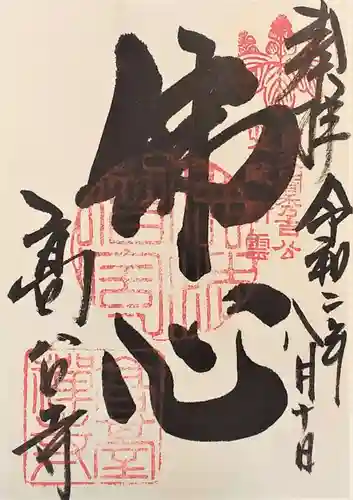 奉拝
令和二年
八月十日
佛心
高台寺